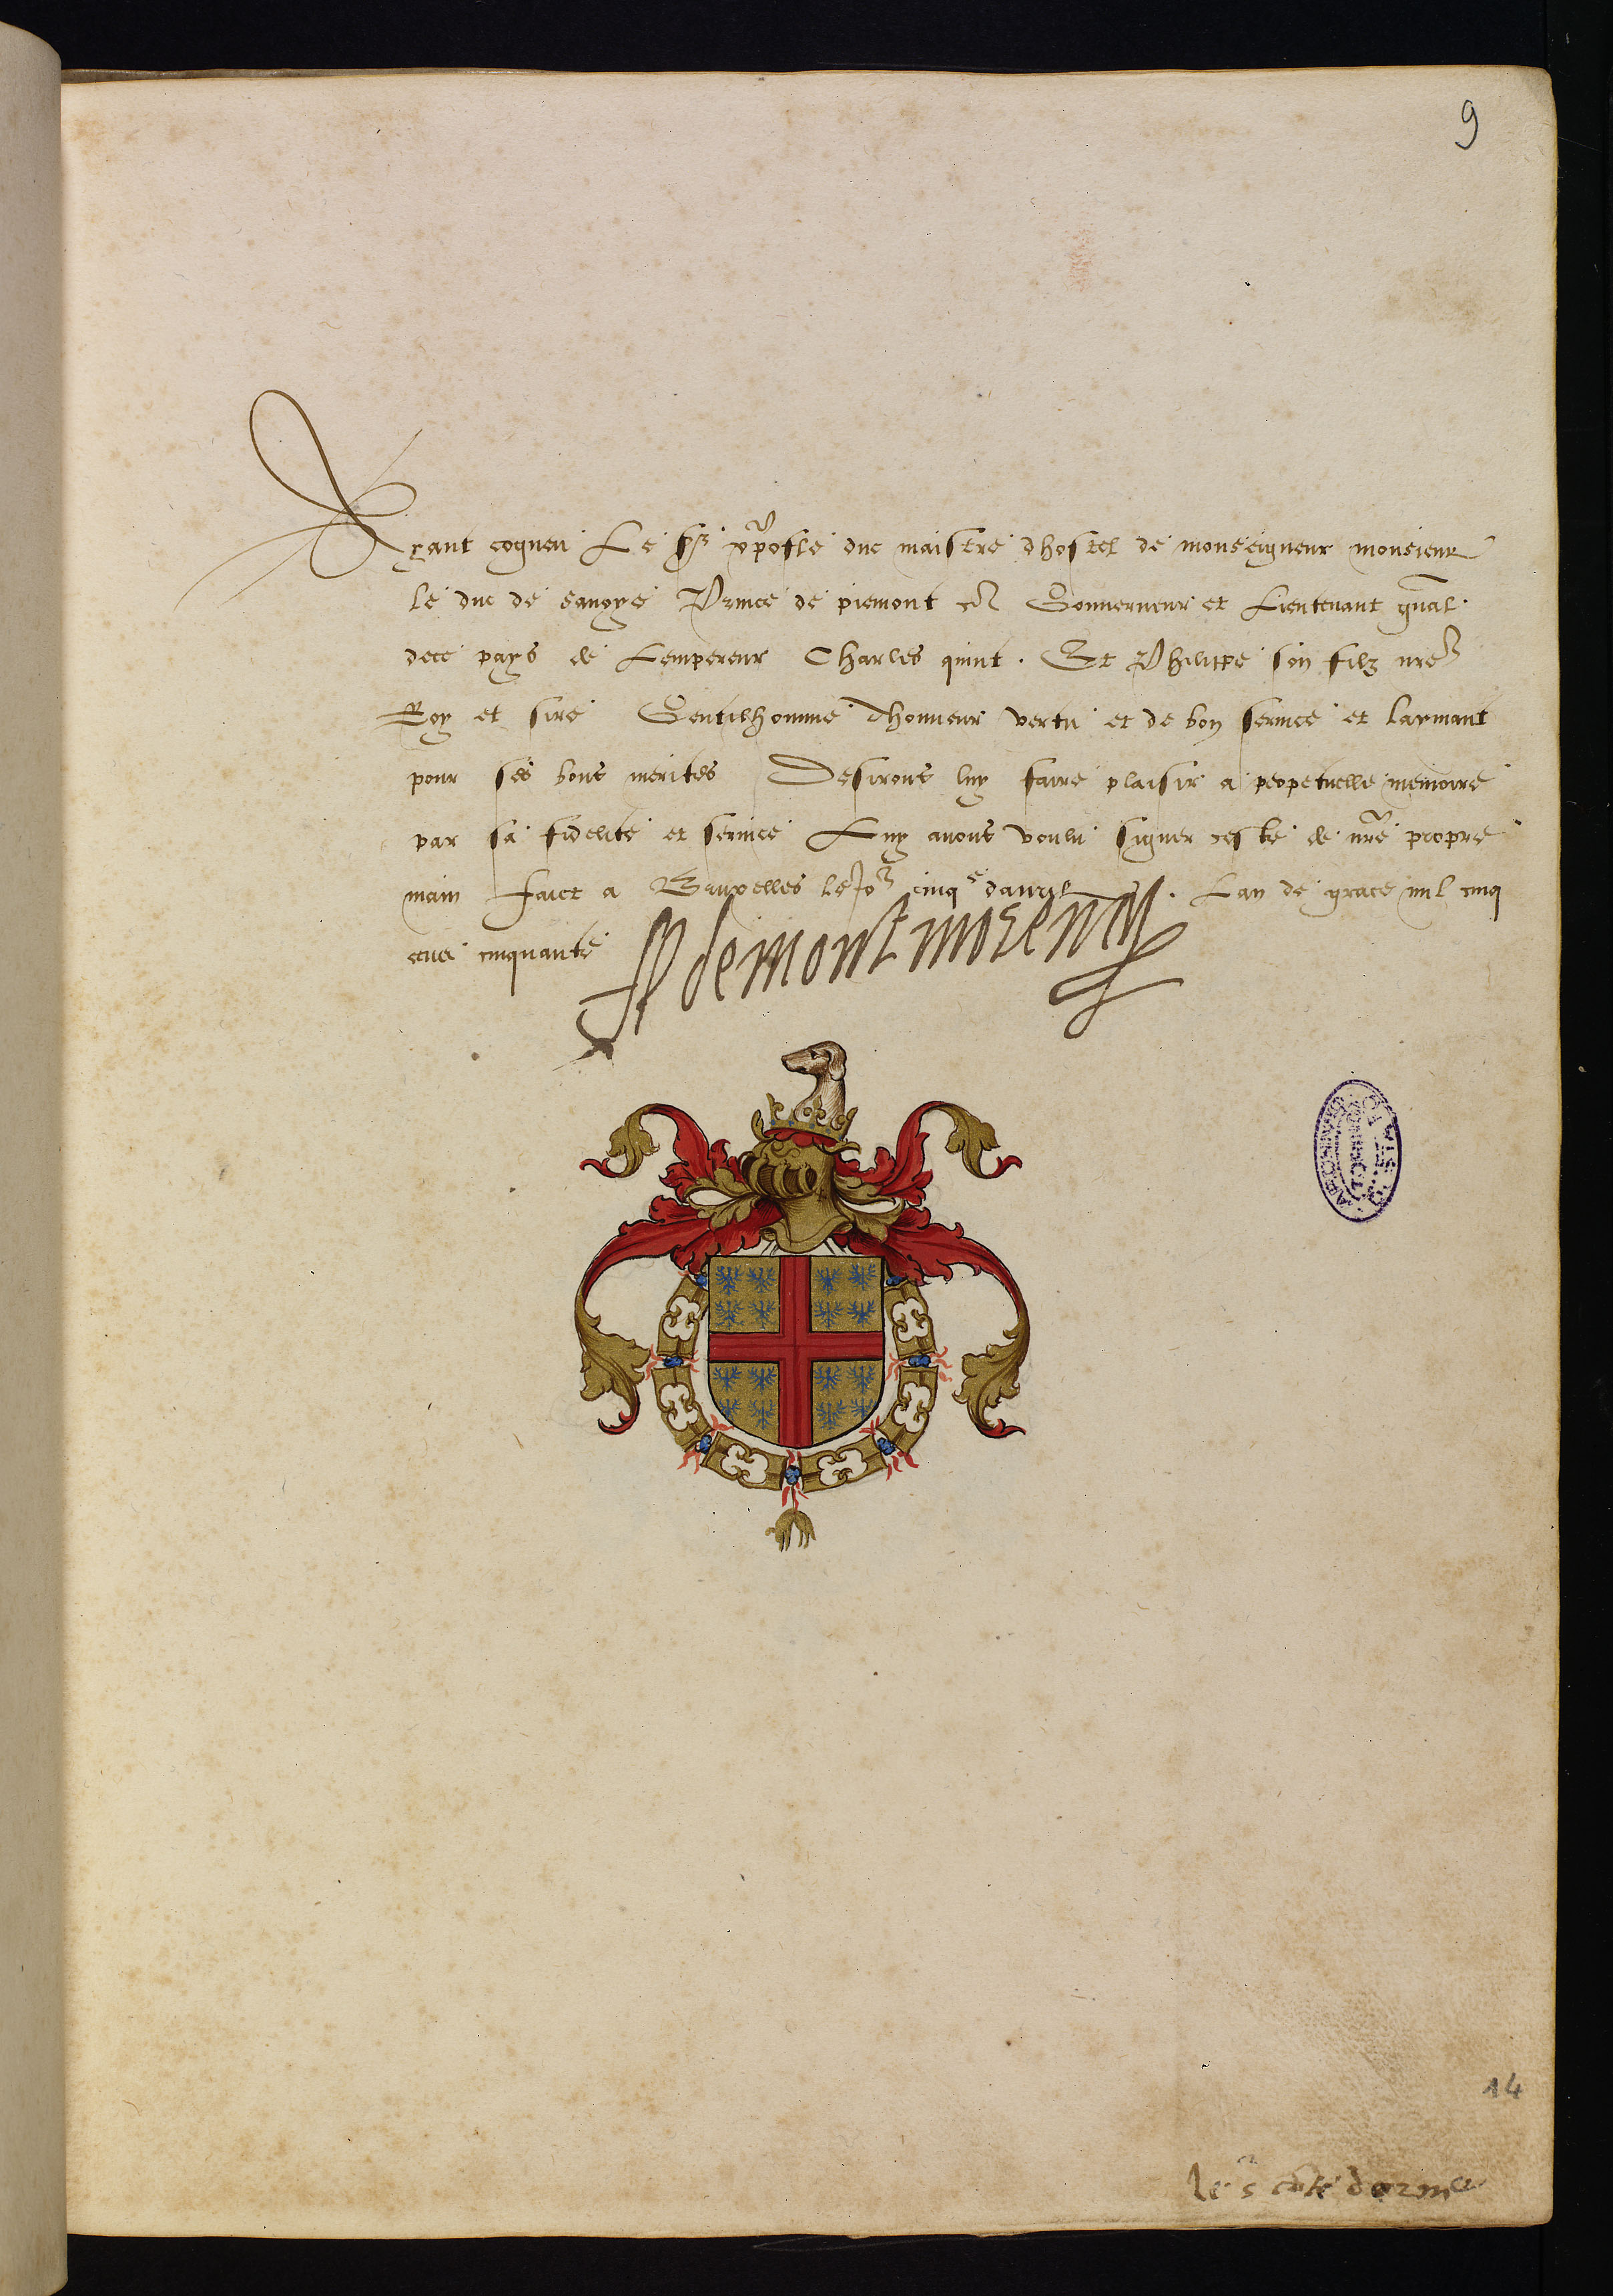 9
Ayant cogneu Le Sr xpofle duc maistre dhostel de monseigneur monsieur
le duc de savoye Prince de piemont etc Gouverneur et Lieutenant gnāl
dece pays de Lempereur Charles quint. Et Philippe son filz nre
Roy et sire Gentilhomme dhonneur vertu et de bon service et laymant
pour ses bons merites Desirons luy faire plaisir a perpetuelle memoire
par sa fidelite et service Luy avons voulu signer ceste de nre propre
main Faict a Bruxelles le Jor cinqe davril. Lan de grace mil cinq
cens cinquante
P demontmorency
14
le conte dorne